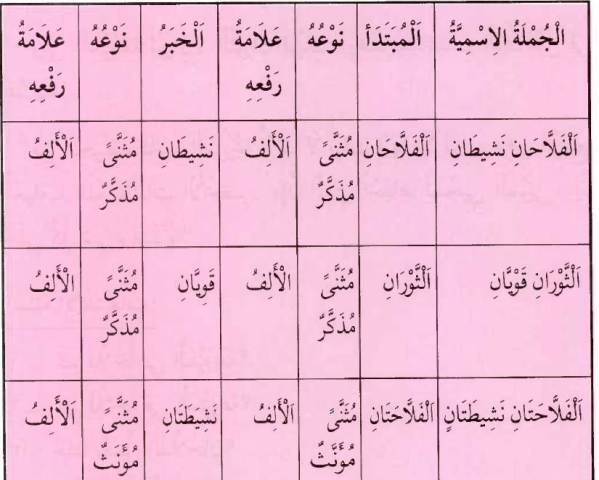 الْجُمْلَةُ الِاسْمِيَّةُ اَلْمُبْتَدَأ نَوْعُهُ عَلَامَةُ رَفْعِهِ اَلْخَبَرُ نَوْعُهُ عَلَامَةُ رَفْعِهِ
اَلْفَلَّاحَانِ نَشِيطَانِ اَلْفَلَّاحَانِ مُثَنًّى مُذَكَّرٌ اَلْأَلِفُ نَشِيطَانِ مُثَنًّى مُذَكَّرٌ اَلْأَلِفُ
اَلثَّوْرَانِ قَوِيَّانِ اَلثَّوْرَانِ مُثَنًّى مُذَكَّرٌ الْأَلِفُ قَوِيَّانِ مُثَنًّى مُذَكَّرٌ الْأَلِفُ
اَلْفَلَّاحَتَانِ نَشِيطَتَانِ اَلْفَلَّاحَتَانِ مُثَنًّى مُؤَنَّثٌ اَلْأَلِفُ نَشِيطَتَانِ مُثَنًّى مُؤَنَّثٌ اَلْأَلِفُ